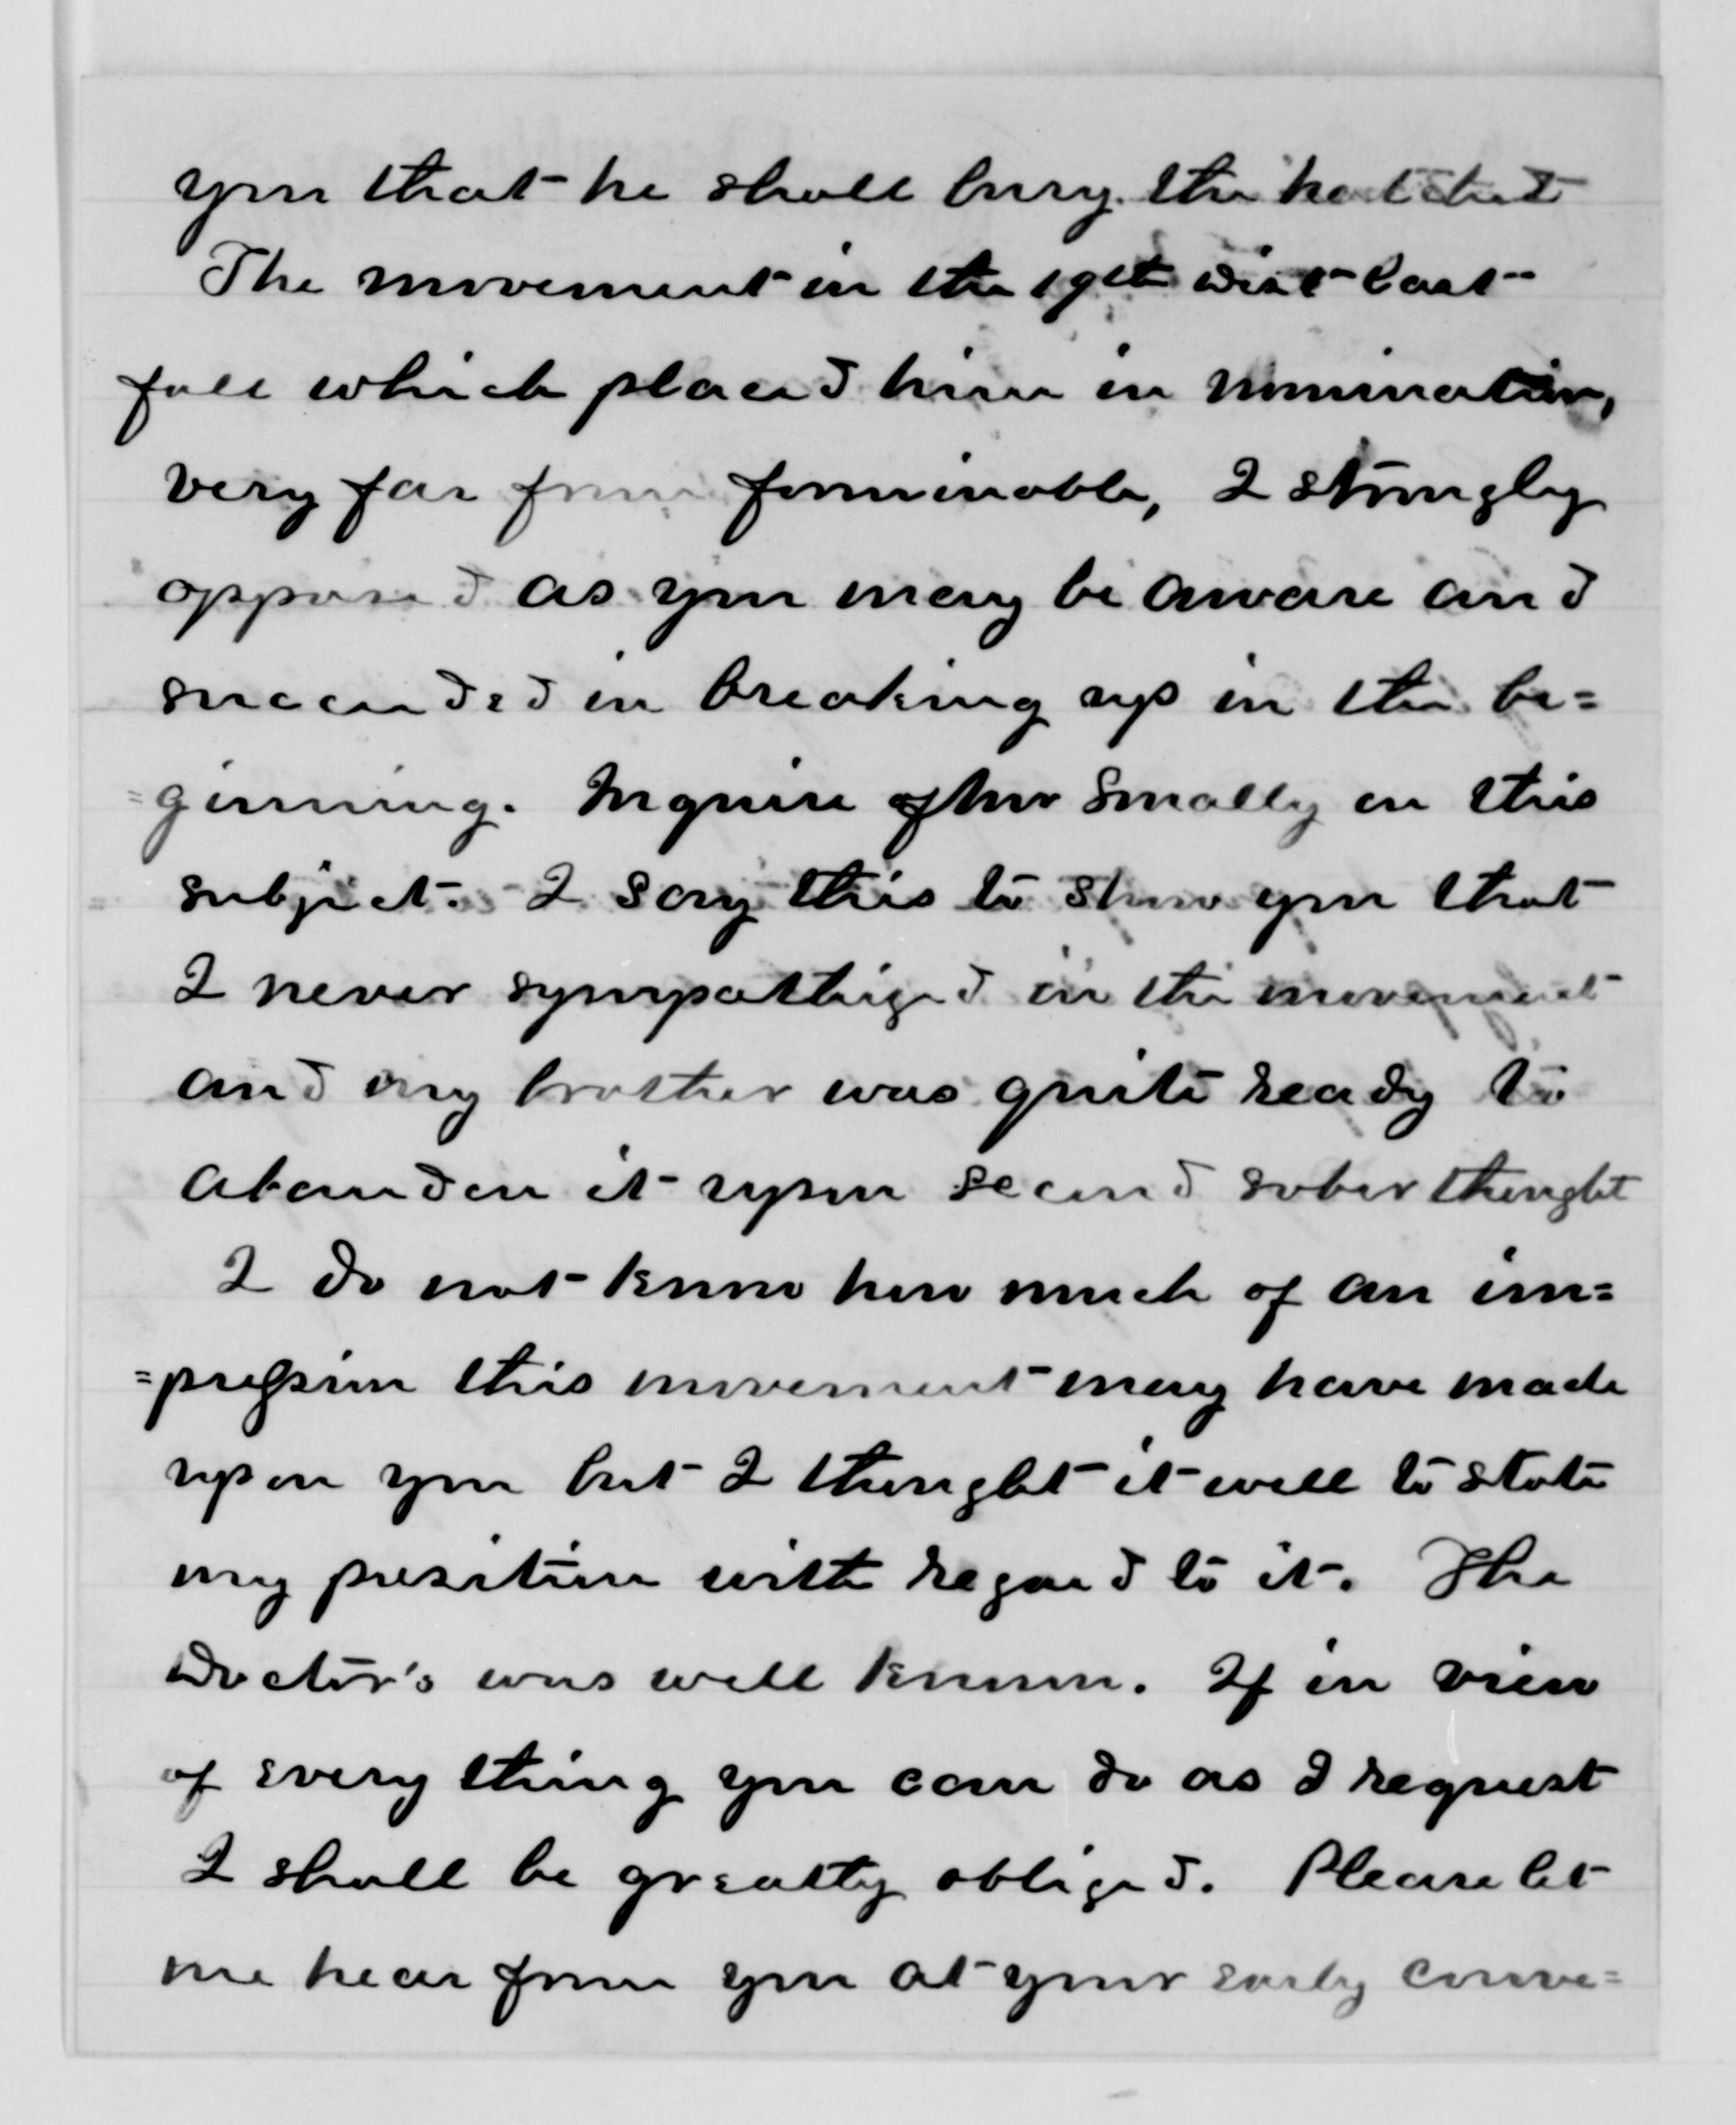 you that he shall bury the hatchet
The movement in the 19th Dist last
fall which placed him in nomination,
very far from formidable, I strongly
opposed as you may be aware and
succeeded in breaking up in the be=
=ginning. Inquire of Mr Smally on this
subject. I say this to show you that
I never sympathized in the movement
and my brother was quite ready to
abandon it upon second sober thought
I do not know how much of an im=
=pression this movement may have made
upon you but I thought it well to state
my position with regard to it. The
Doctor's was well known. If in view
of every thing you can do as I request
I shall be greatly obliged. Please let
me hear from you at your early conve=